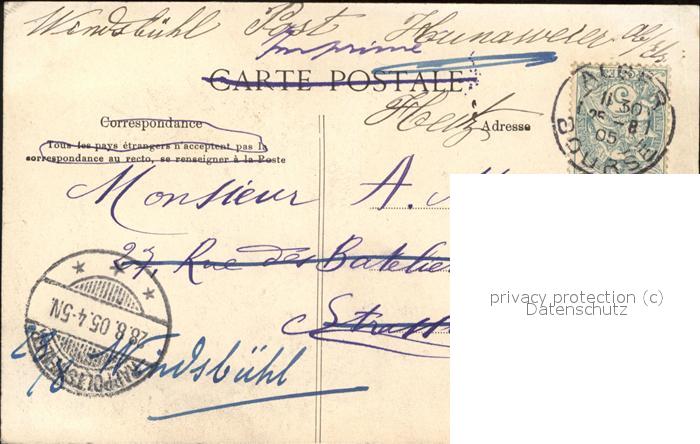 Windsbühl Post Hunaweier
Imprimé
CARTE POSTALE
Correspondance
Tous les pays étrangers n'acceptent pas la
correspondance au recto, se renseigner à la Poste
Heitz
Adresse
ALGER
11 30
25 - 8
05
BOURSE
Monsieur A.
27, Rue des Batelie
Strass
28.8.05.4-5N.
RAPPOLTSWEILER
Windsbühl
privacy protection (c)
Datenschutz